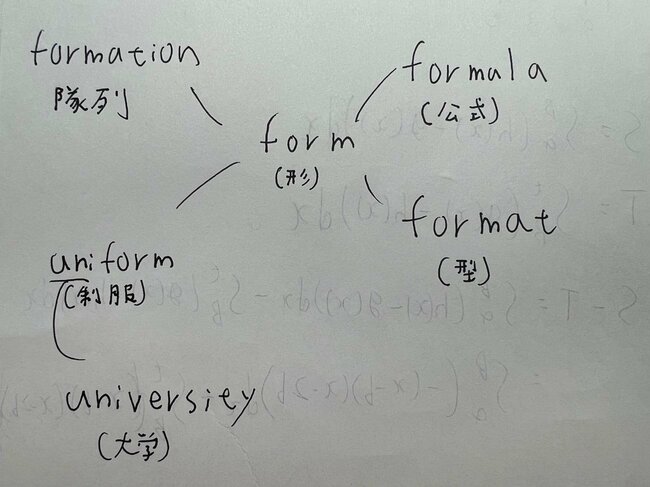 formation
隊列
formala
(公式)
form
(形)
format
(型)
uniform
(制服)
university
(大学)